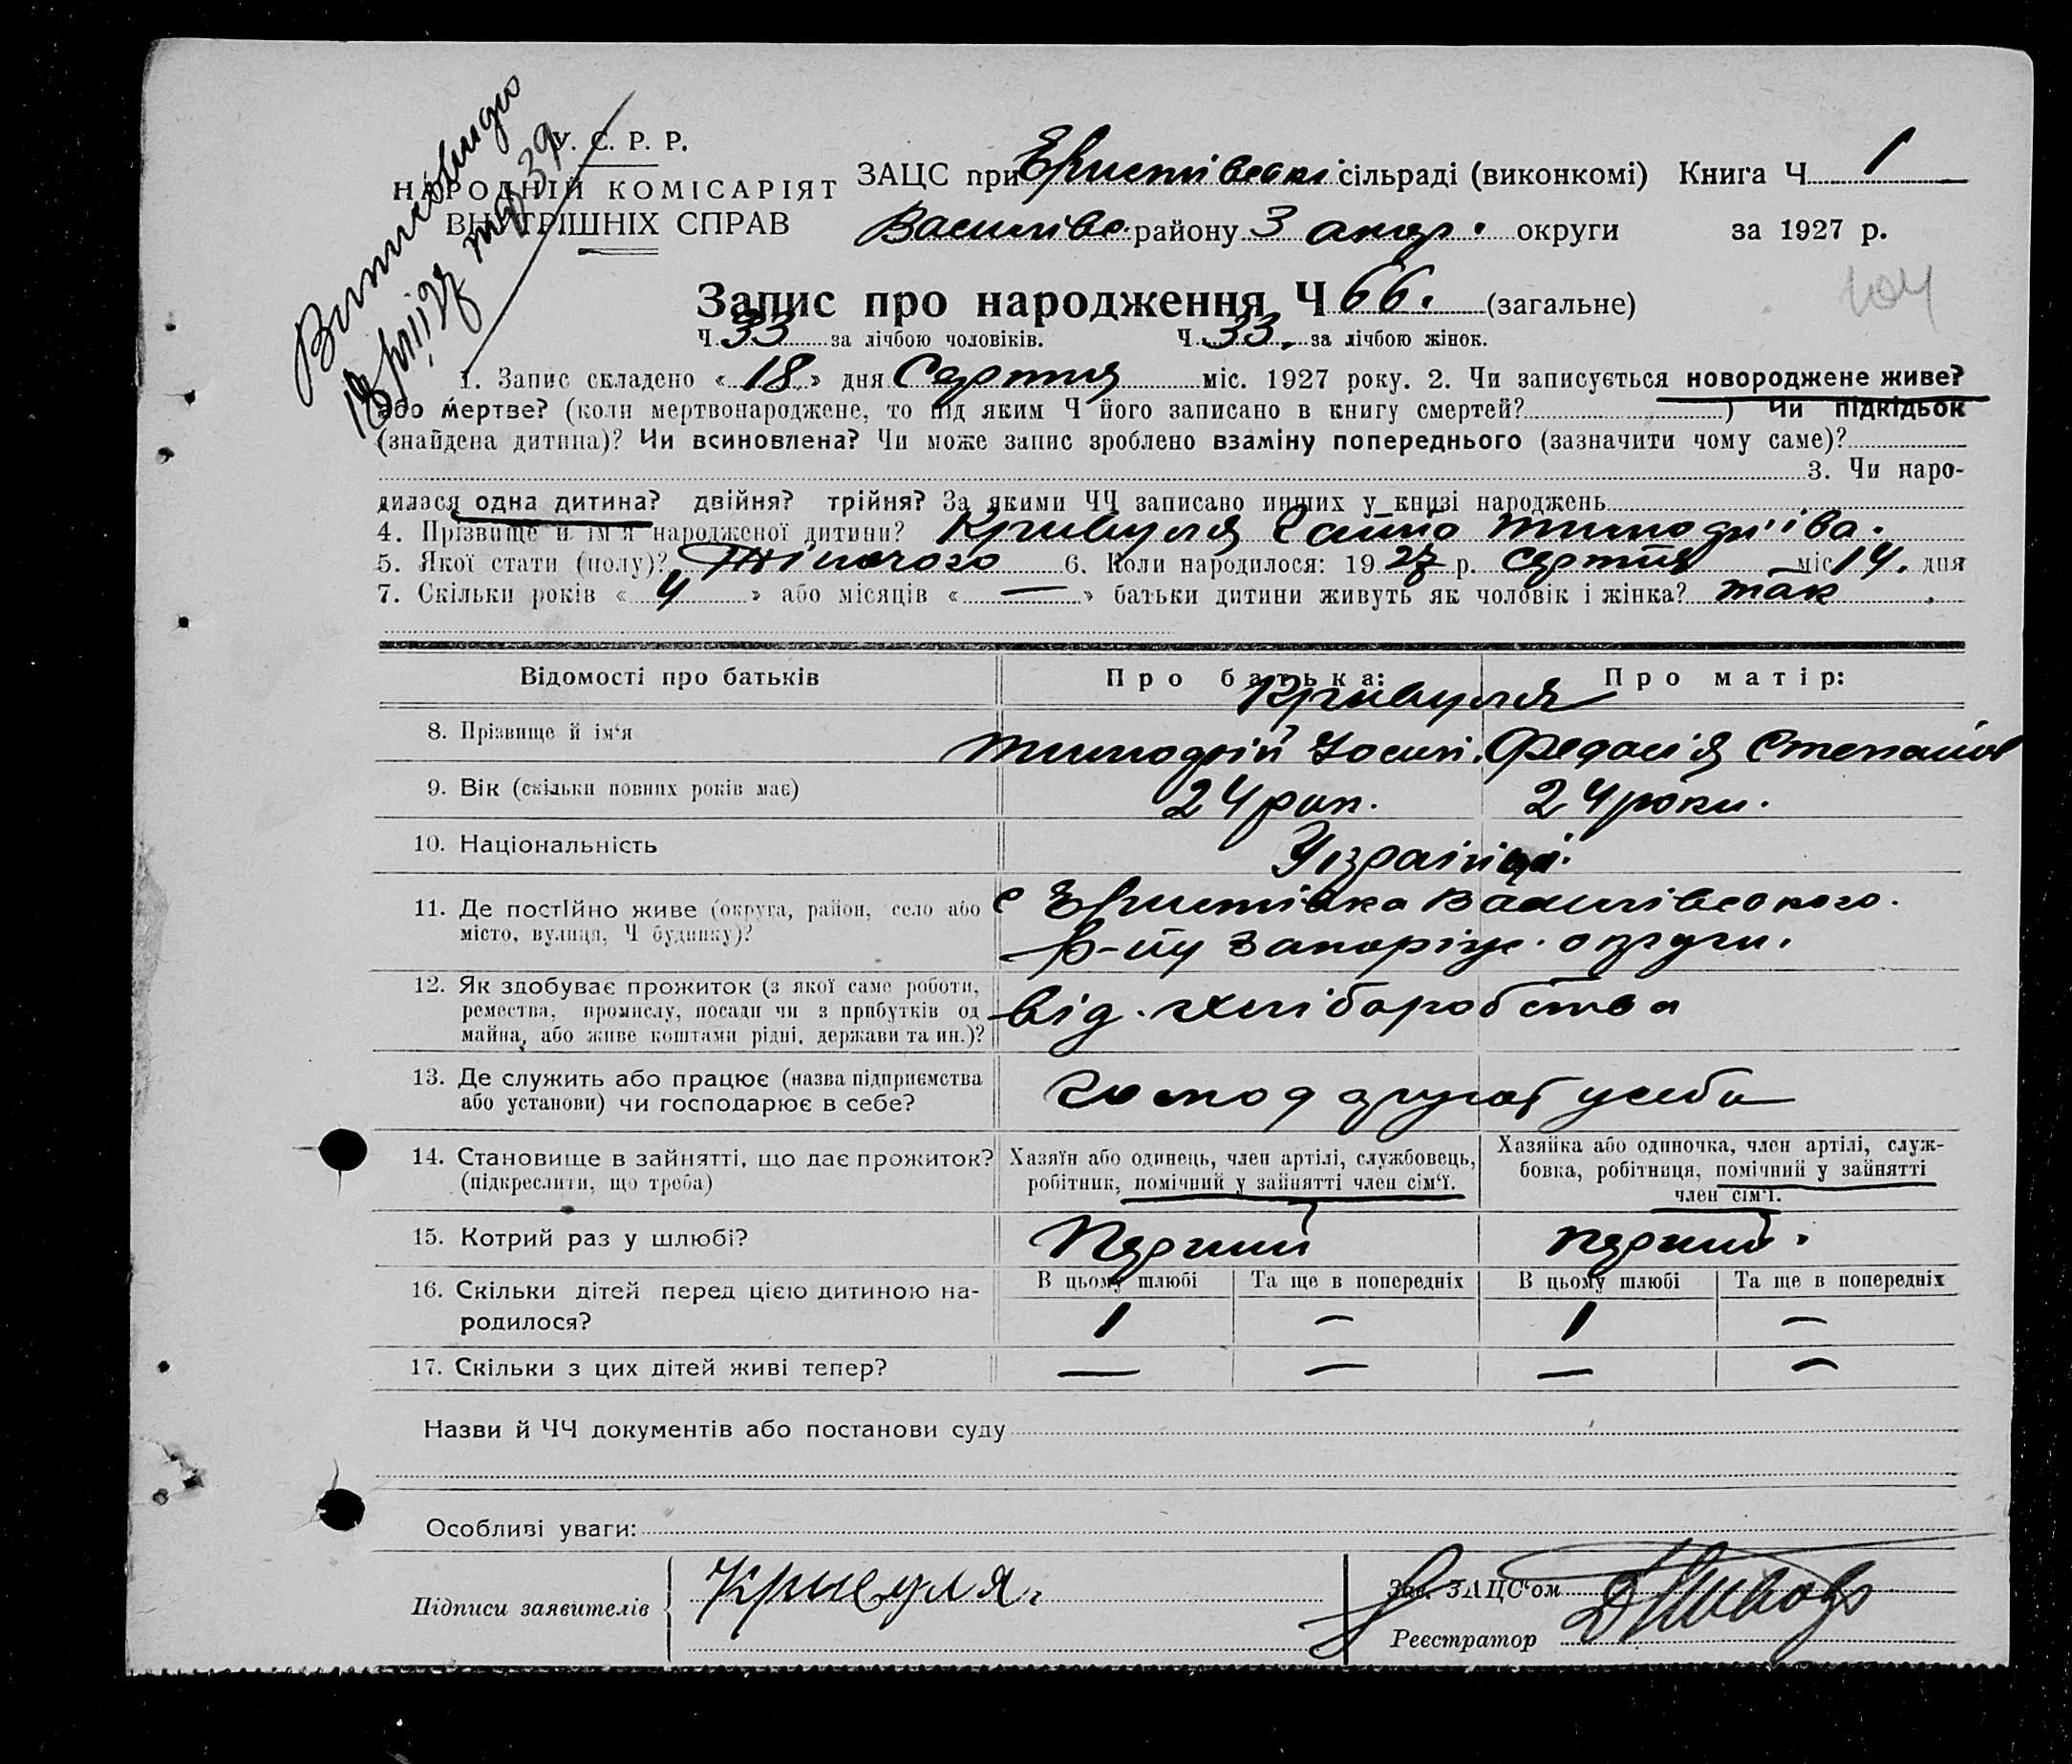 У. С. Р. Р.
НАРОДНІЙ КОМІСАРІЯТ
ВНУТРІШНІХ СПРАВ
ЗАЦС при сільраді (виконкомі) Книга Ч 1
Василівс. району З окр. округи за 1927 р.
104
Запис про народження Ч 66. (загальне)
Ч. 33 за лічбою чоловіків. Ч. 33. за лічбою жінок.
1. Запис складено « 18 » дня Серпня міс. 1927 року. 2. Чи записується новороджене живе?
або мертве? (коли мертвонароджене, то під яким Ч його записано в книгу смертей? ) Чи підкідьок
(знайдена дитина)? Чи всиновлена? Чи може запис зроблено взаміну попереднього (зазначити чому саме)?
3. Чи наро-
дилася одна дитина? двійня? трійня? За якими ЧЧ записано инших у книзі народжень
4. Прізвище й ім'я народженої дитини? Кривуля
5. Якої стати (полу)? Жіночого 6. Коли народилося: 1927 р. серпня міс 14. дня
7. Скільки років « 4 » або місяців « — » батьки дитини живуть як чоловік і жінка? так
Відомості про батьків Про батька: Про матір:
Кривуля
8. Прізвище й ім‘я Тимофій Йосип. Феодосія Степанів
9. Вік (скільки повних років має) 24 рок. 24 роки.
10. Національність Українці.
11. Де постійно живе (округа, район, село або с Василівського
місто, вулиця, Ч будинку)? р-ну Запоріж. округи.
12. Як здобуває прожиток (з якої саме роботи, від. хліборобства
ремества, промислу, посади чи з прибутків од
майна, або живе коштами рідні, держави та ин.)?
13. Де служить або працює (назва підприємства
або установи) чи господарює в себе? у себе
14. Становище в зайнятті, що дає прожиток? Хазяїн або одинець, член артілі, службовець, Хазяйка або одиночка, член артілі, служ-
(підкреслити, що треба) робітник, помічний у зайнятті член сім‘ї. бовка, робітниця, помічний у зайнятті
член сім‘ї.
15. Котрий раз у шлюбі? Перший перший.
16. Скільки дітей перед цією дитиною на- В цьому шлюбі Та ще в попередніх В цьому шлюбі Та ще в попередніх
родилося? 1 — 1 —
17. Скільки з цих дітей живі тепер? — — — —
Назви й ЧЧ документів або постанови суду
Особливі уваги:
Підписи заявителів Кривуля. Зав. ЗАЦС‘ом
Реєстратор